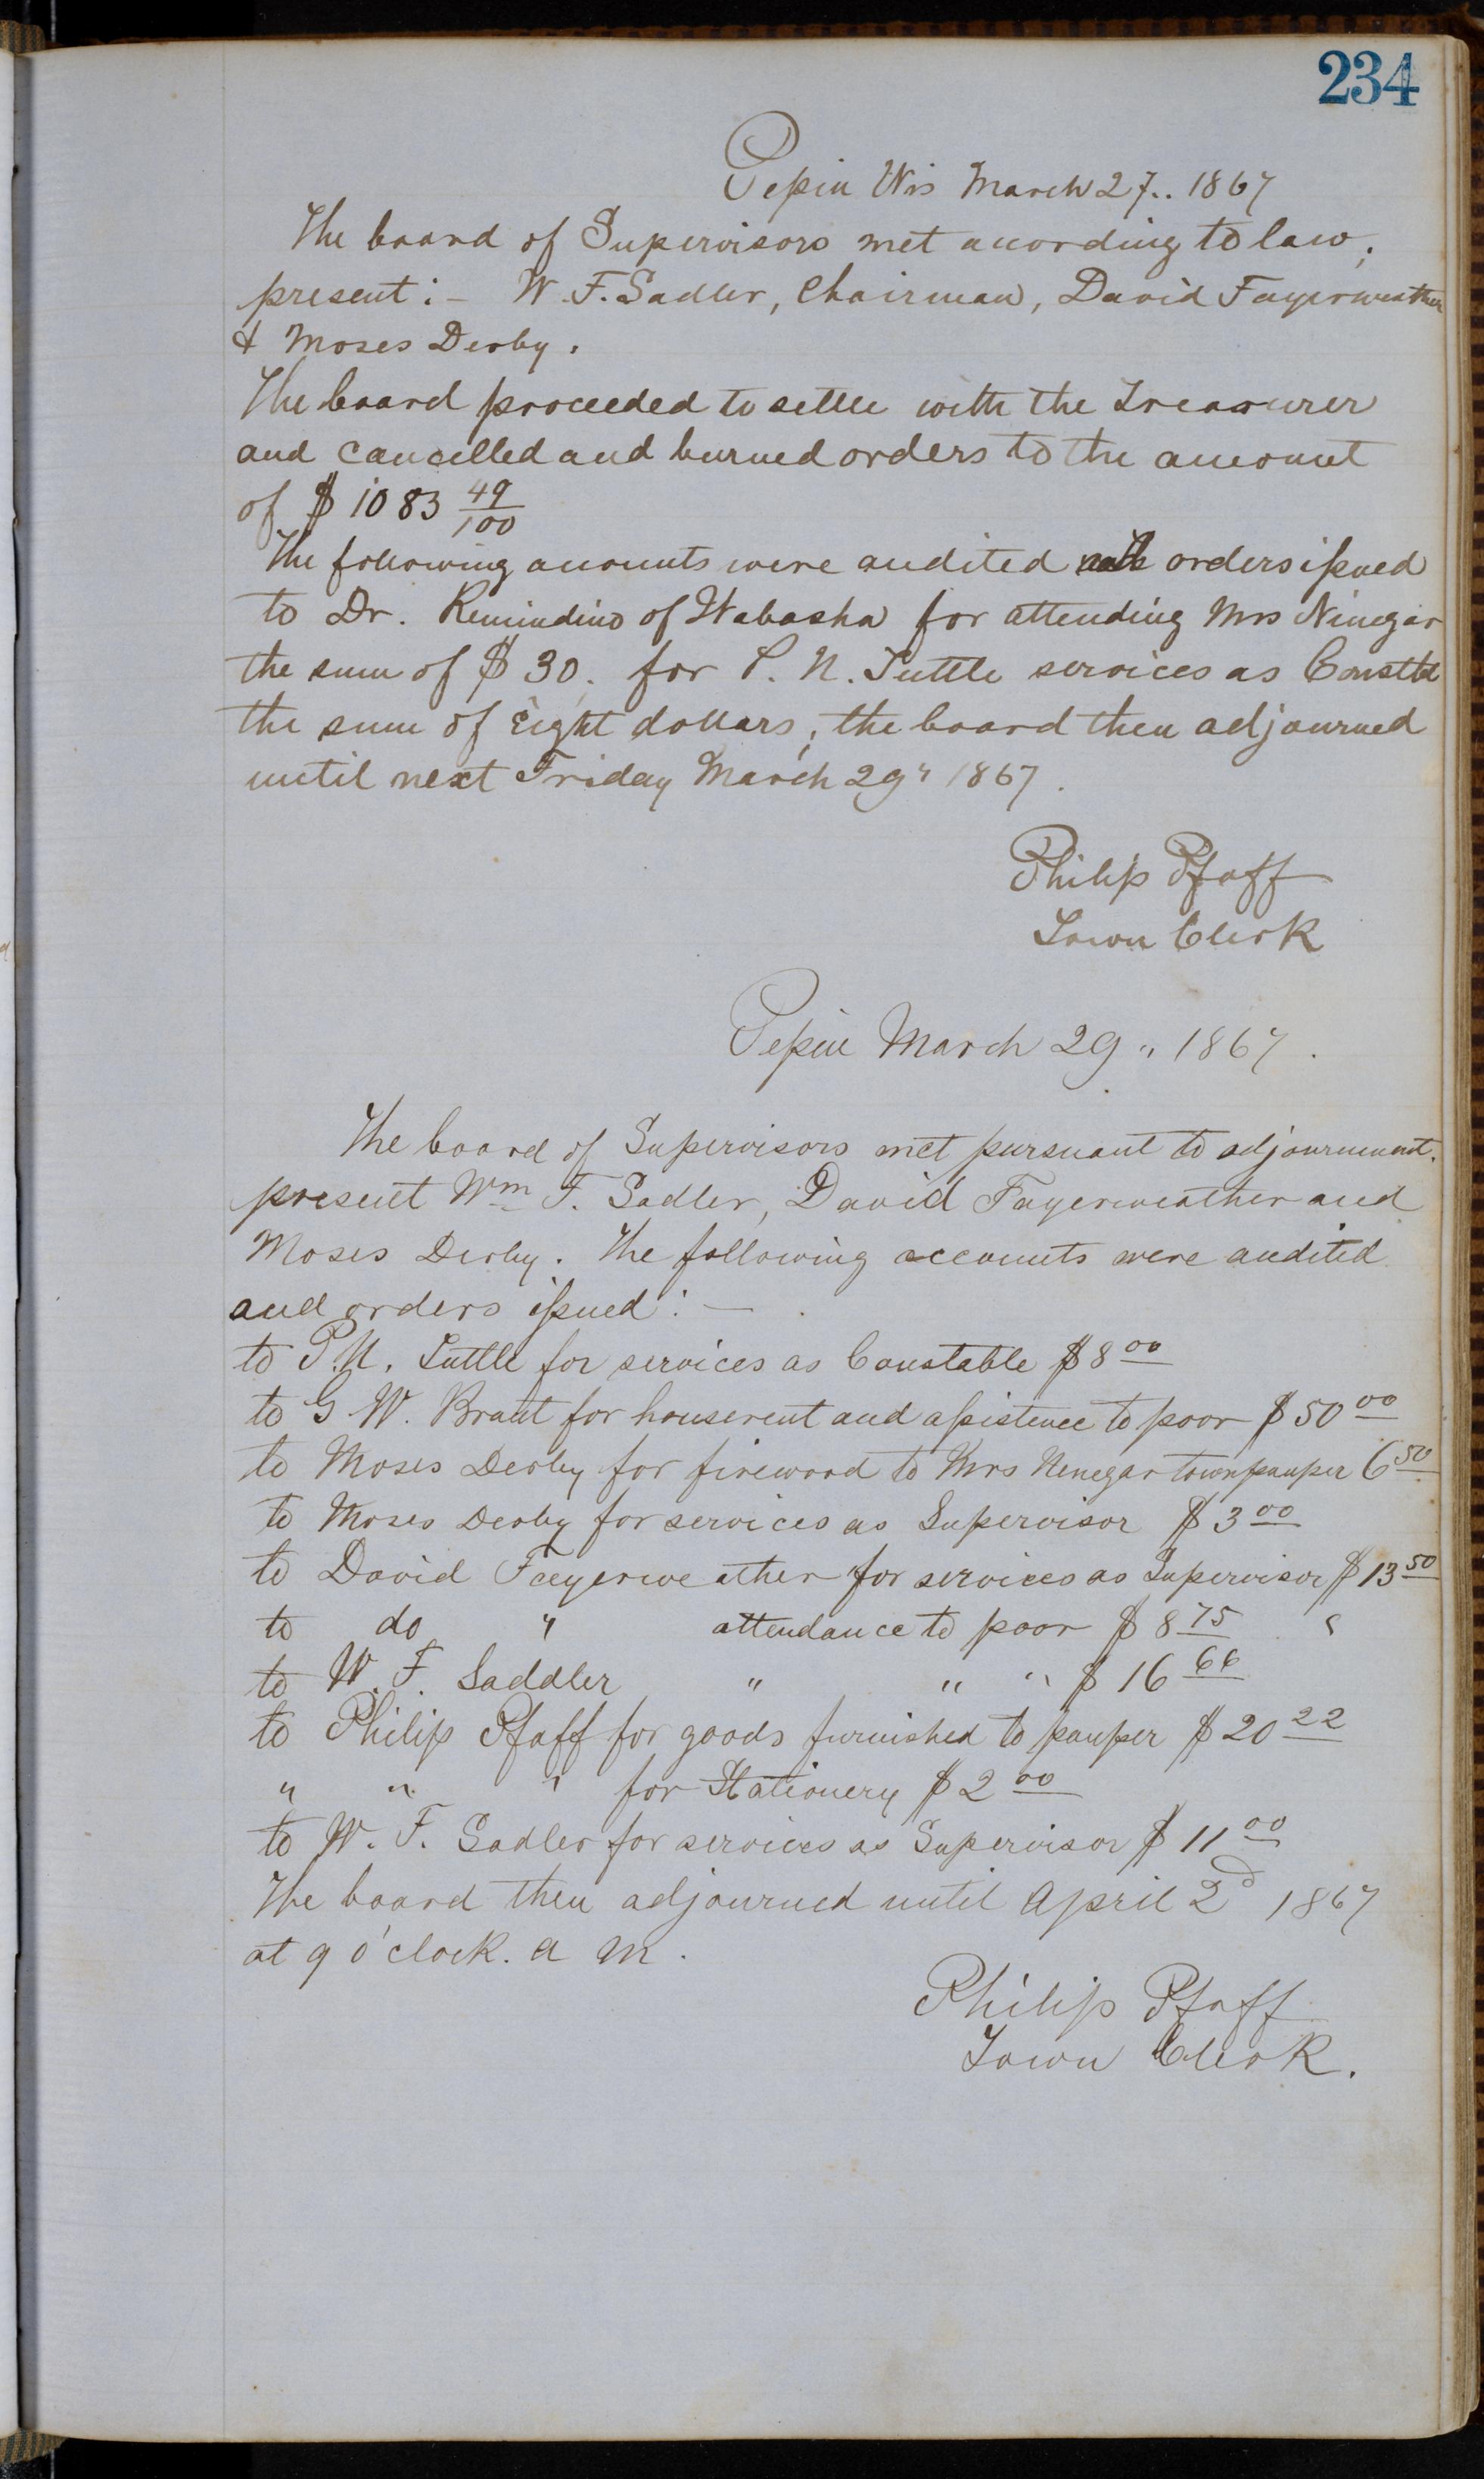 234
Pepin Wis March 27.. 1867
The board of Supervisors met acording to law;
present: - W. F. Sadler, Chairman, David Fayerweather
& Moses Derby.
The board proceeded to settle with the Treasurer
and cancelled and burned orders to the amount
of $ 1083 49/100
The following acounts were audited orders issued
to Dr. Remindino of Wabasha for attending Mrs Ninegar
the sum of $ 30. for P. N. Tuttle services as Constbl
the sum of Eight dollars; the board then adjourned
until next Friday March 29" 1867.
Philip Pfaff
Town Clerk
Pepin March 29 " 1867.
The board of Supervisors met pursuant to adjournment.
present Wm F. Sadler, David Fayerweather and
Moses Derby. The following accounts were audited
and orders issued: —
to P. N. Tuttle for services as Constable $ 8 00
to G. W. Brant for houserent and assistence to poor $ 50 00
to Moses Derby for firewood to Mrs Nenegar town pauper 6 50
to Moses Derby for services as Supervisor $ 3 00
to David Fayerweather for services as Supervisor $ 13 50
to do " attendance to poor $ 8 75
to W. F. Saddler " " " $ 16 66
to Philip Pfaff for goods furnished to pauper $ 20 22
" " " for Stationery $ 2 00
to W. F. Sadler for services as Supervisor $ 11 00
The board then adjourned until April 2d 1867
at 9 o'clock. a m.
Philip Pfaff
Town Clerk.